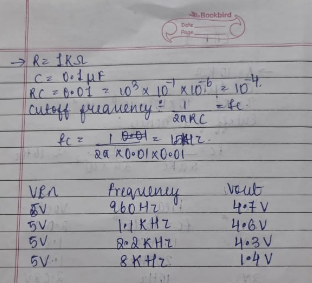 Bookbird
Date
Page
→ R = 1KΩ
C = 0.1 μF
RC = 0.01 = 10³ × 10⁻¹ × 10⁻⁶ = 10⁻⁴.
Cutoff frequency = 1 / 2πRC = fc
fc = 1 / 2π × 0.01 × 0.01 = Hz
Frequency Vout
5V 960 Hz 4.7 V
5V 1.1 KHz 4.6 V
5V 2.2 KHz 4.3 V
5V 8 KHz 1.4 V